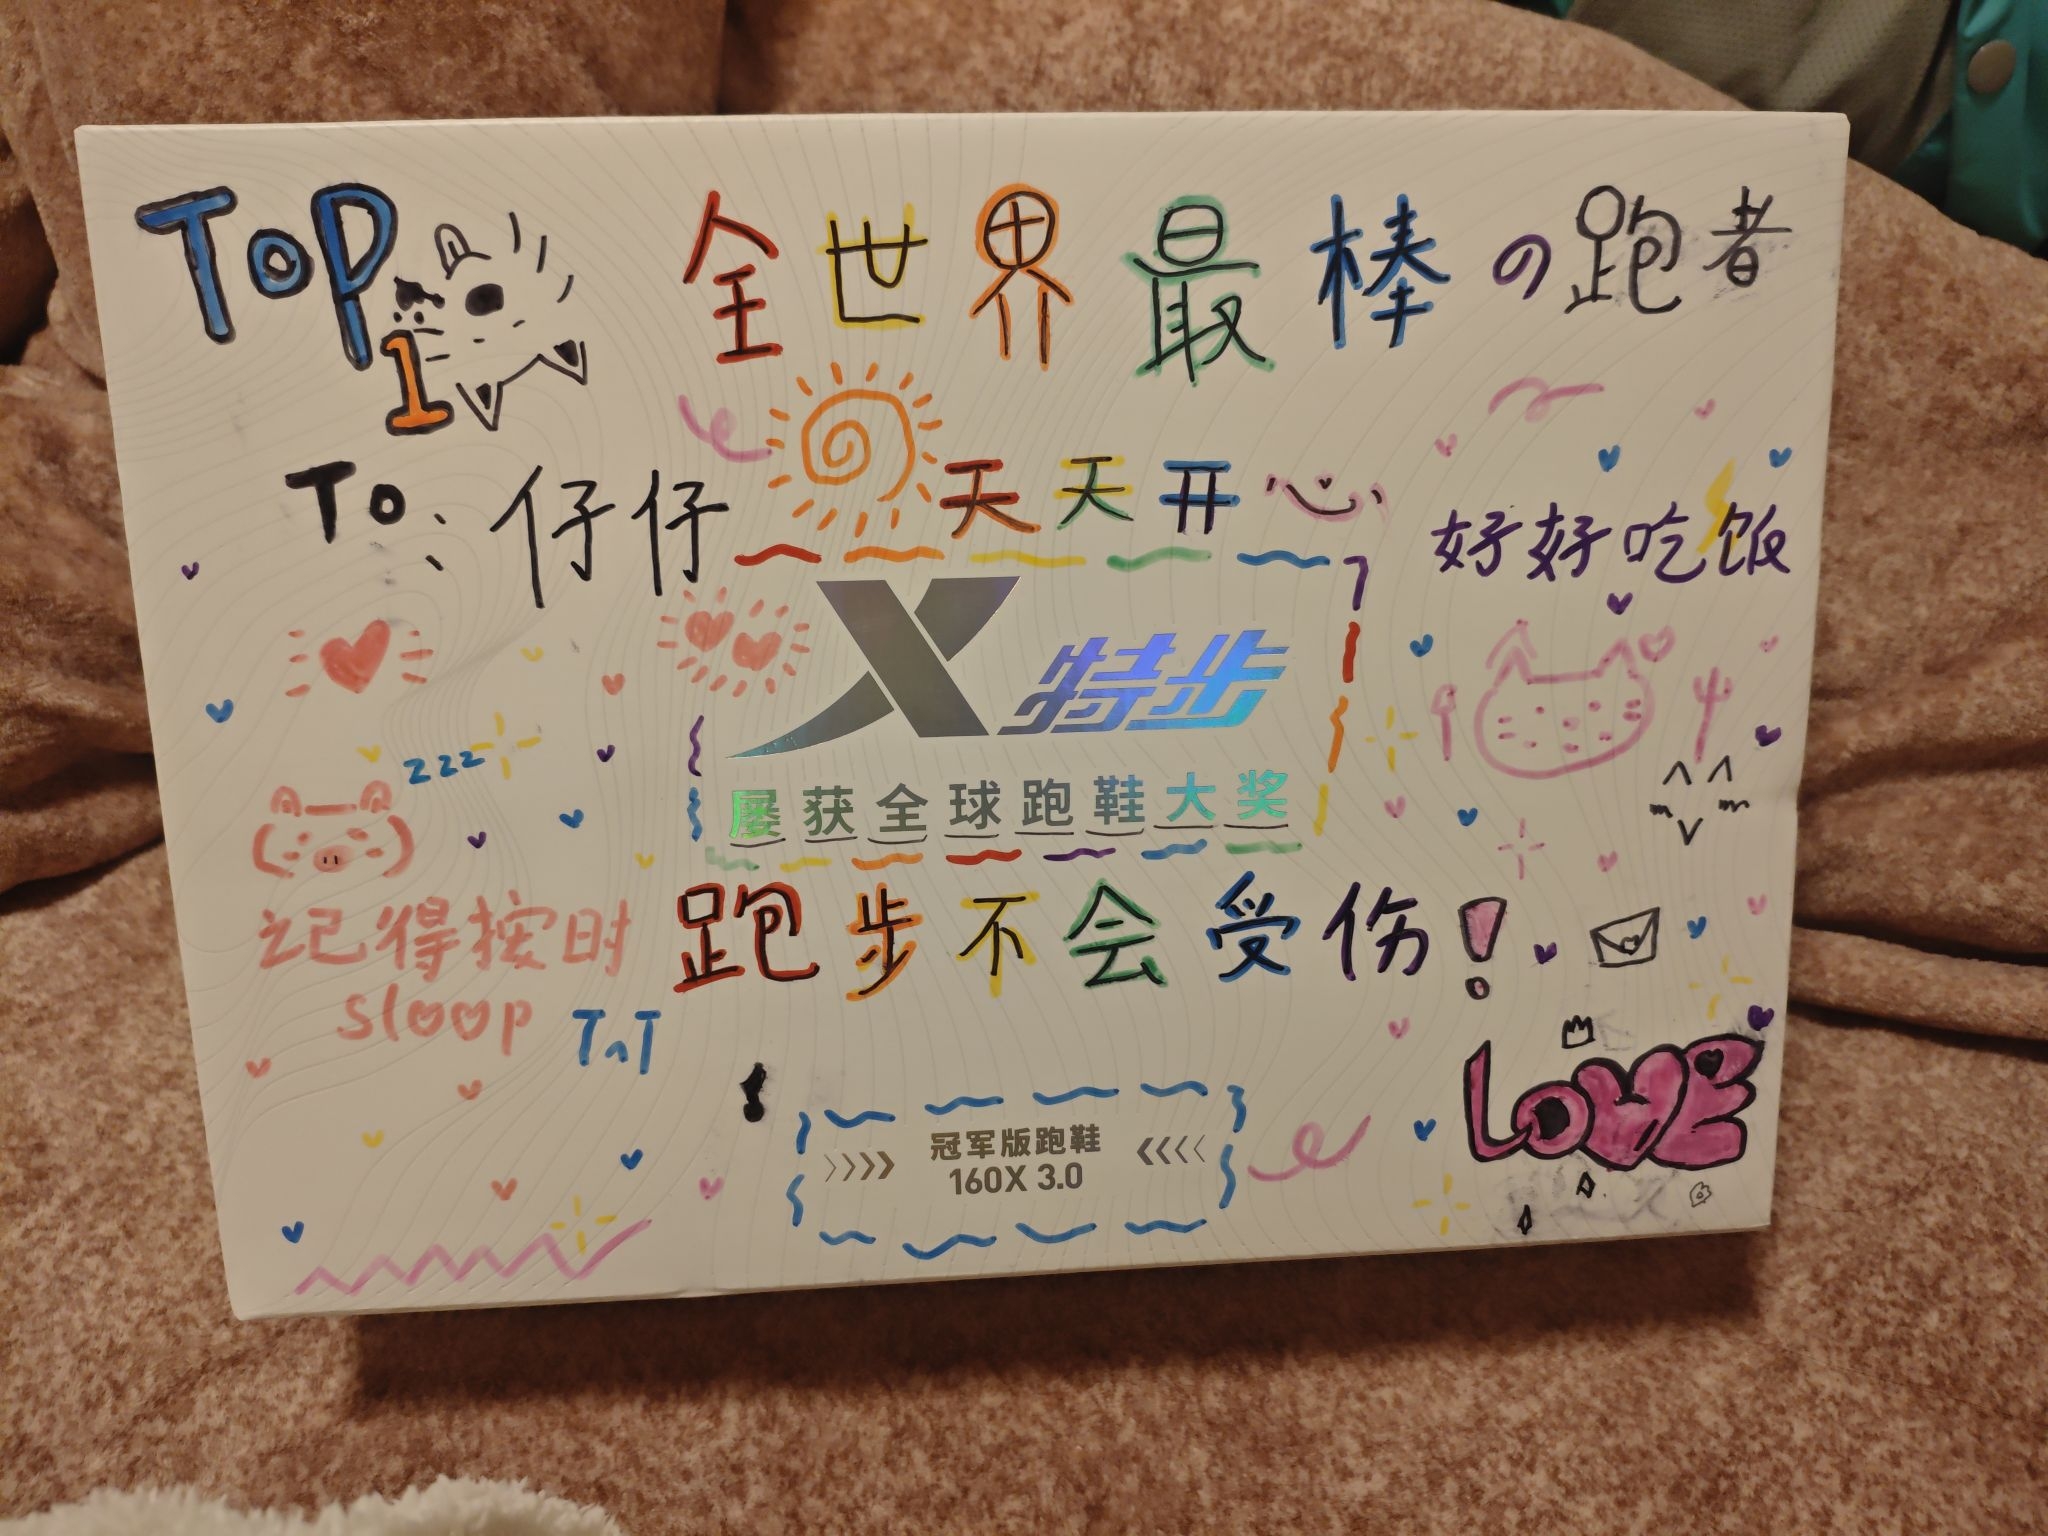 TOP 1
全世界最棒の跑者
To: 仔仔
天天开心
好好吃饭
特步
屡获全球跑鞋大奖
zzz
跑步不会受伤!
记得按时
sloop
TnT
冠军版跑鞋
160X 3.0
LOVE